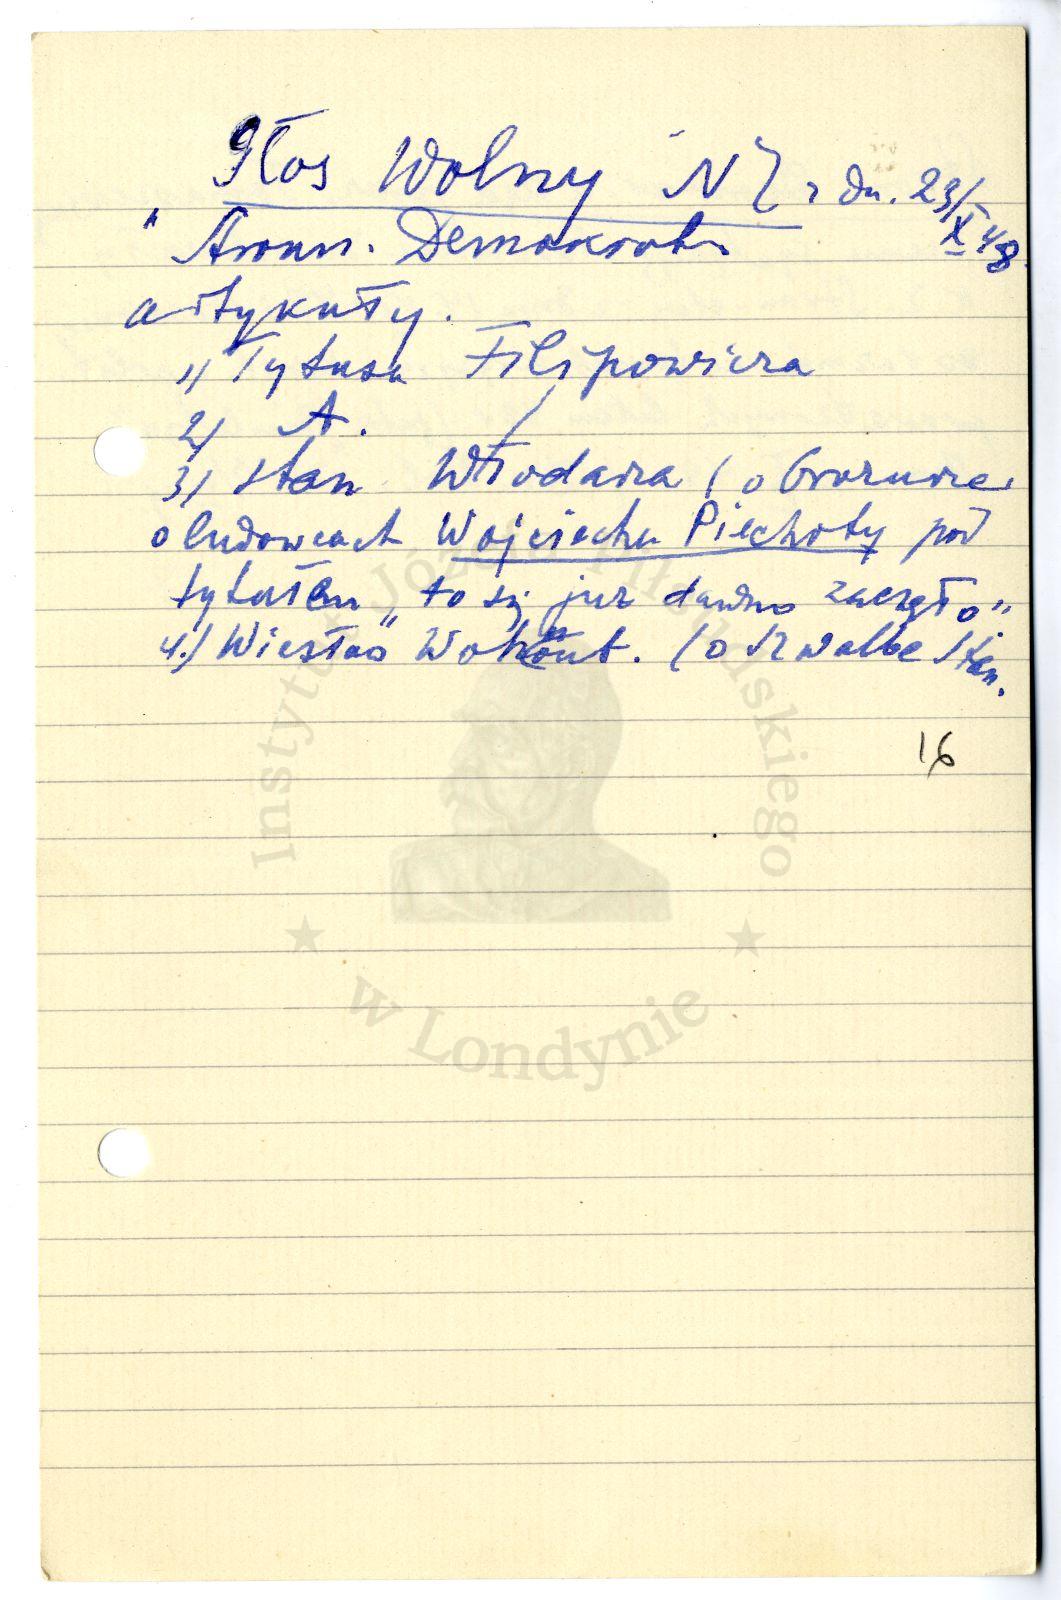 Głos Wolny N 7 z dn. 23/X 48.
Demokrata
artykuły.
1) Tytusa Filipowicza
2) A.
3) Stan Włodarza (o
o ludowcach Wojciecha Piechoty pod
tytułem „to się już dawno zaczęło"
4.) Wiesław Wohnout. (o Szwalbe Stan.
16
Instytut Józefa Piłsudskiego
w Londynie